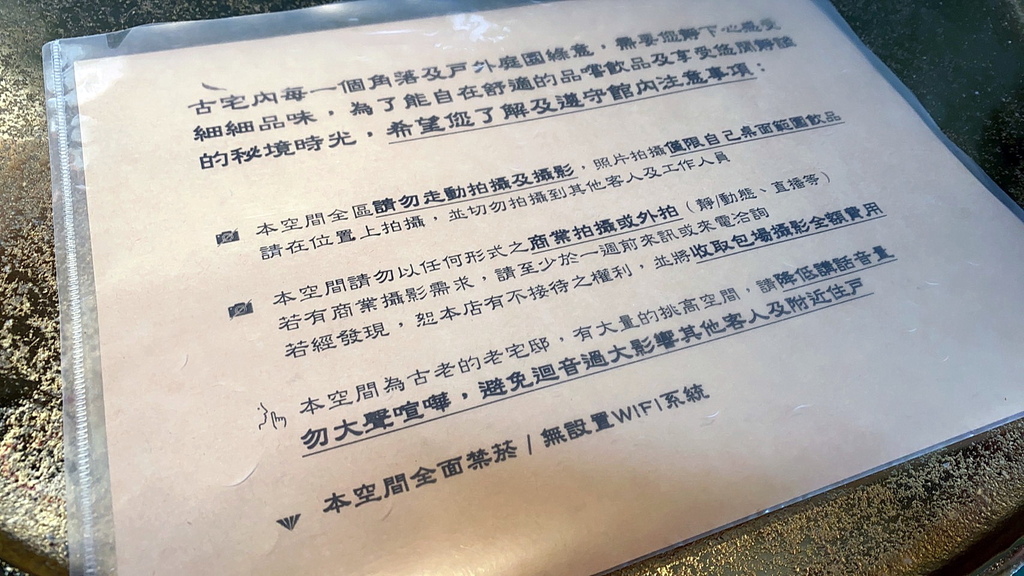 古宅內每一個角落及戶外庭園綠意，需要您靜下心感受
細細品味，為了能自在舒適的品嘗飲品及享受悠閒靜謐
的秘境時光，希望您了解及遵守館內注意事項：
本空間全區請勿走動拍攝及攝影，照片拍攝僅限自己桌面範圍飲品
請在位置上拍攝，並切勿拍攝到其他客人及工作人員
本空間請勿以任何形式之商業拍攝或外拍（靜/動態、直播等）
若有商業攝影需求，請至少於一週前來訊或來電洽詢
若經發現，恕本店有不接待之權利，並將收取包場攝影全額費用
本空間為古老的老宅邸，有大量的挑高空間，請降低講話音量
勿大聲喧嘩，避免迴音過大影響其他客人及附近住戶
本空間全面禁菸 / 無設置WIFI系統